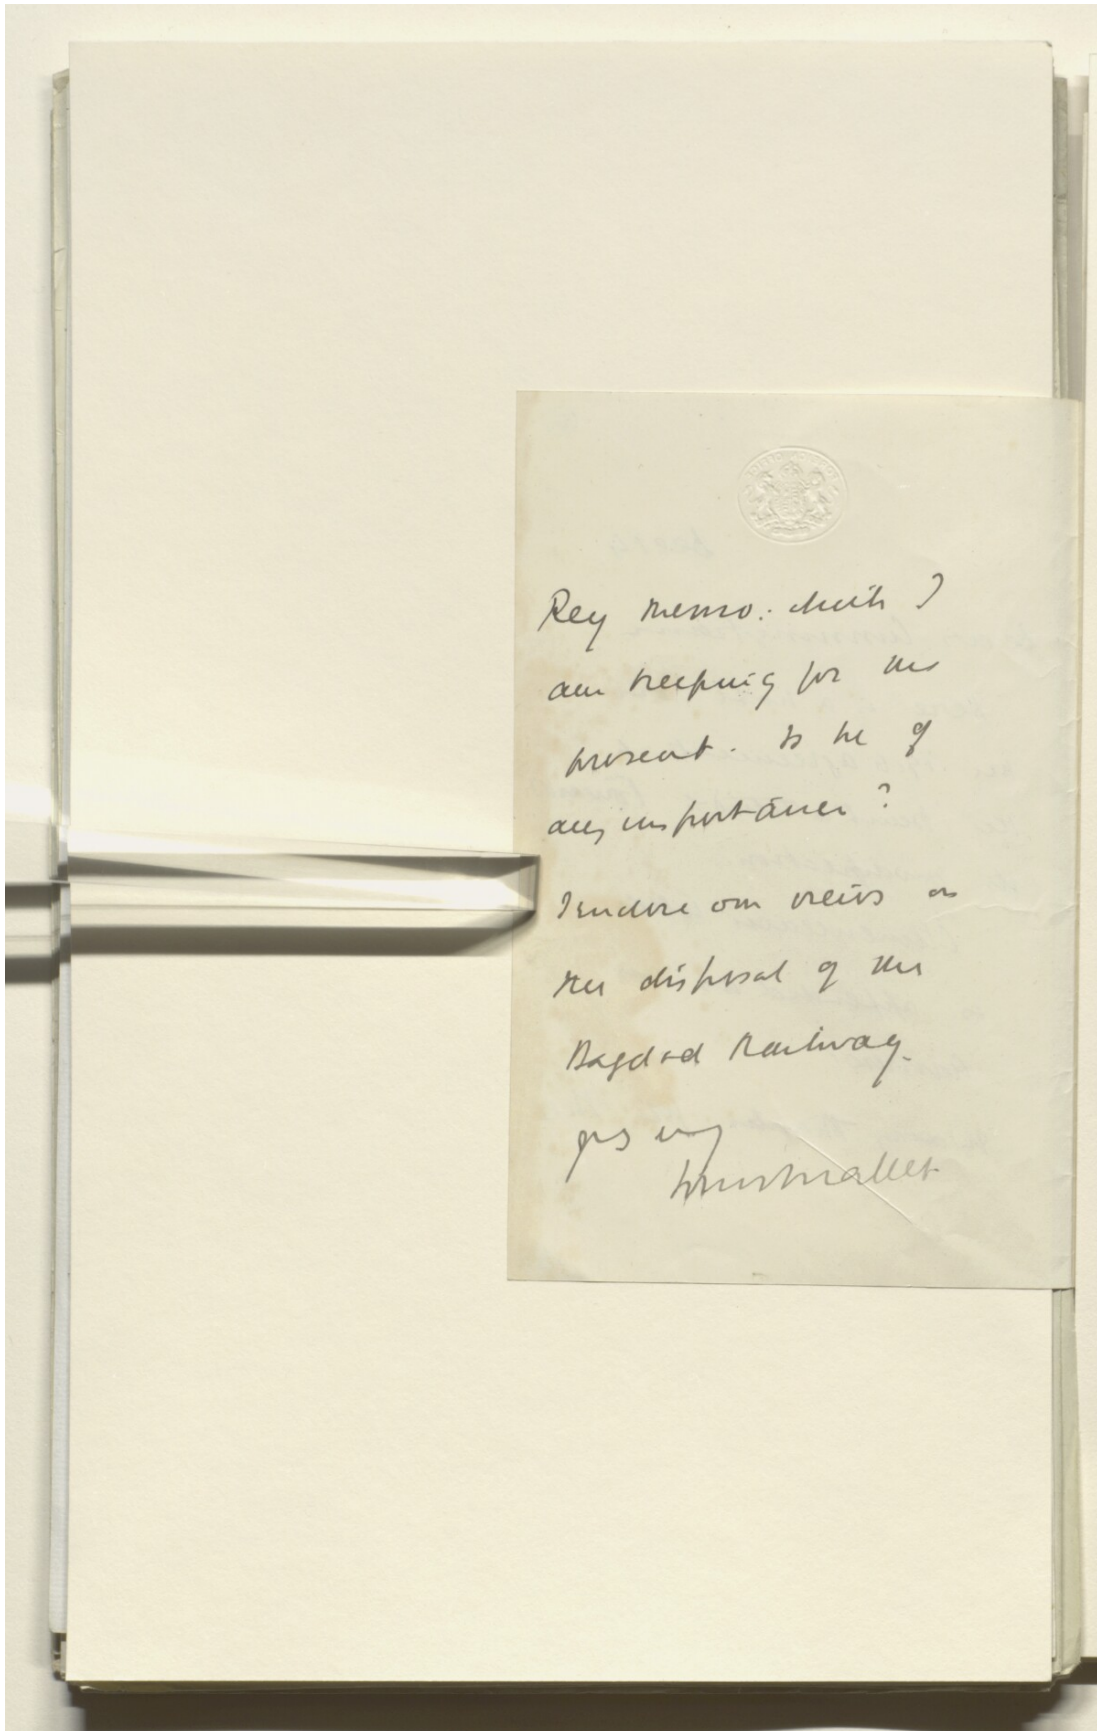 memo: which I
am keeping for the
present. Is he of
any importance?
I endorse our views on
the disposal of the
Bagdad Railway.
yrs
Louis Mallet